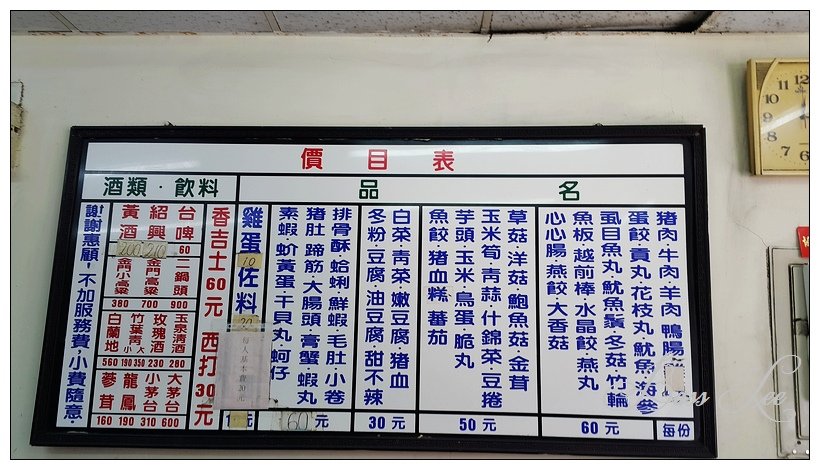 價目表
品名
酒類·飲料
每份
豬肉·牛肉·羊肉·鴨腸
蛋餃·貢丸·花枝丸·魷魚·海參
虱目魚丸·魷魚鬚·冬菇·竹輪
魚板·越前棒·水晶餃·燕丸
心心腸·燕餃·大香菇
60元
草菇·洋菇·鮑魚菇·金茸
玉米筍·青蒜·什錦菜·豆捲
芋頭·玉米·鳥蛋·脆丸
魚餃·豬血糕·蕃茄
50元
白菜·青菜·嫩豆腐·豬血
冬粉·豆腐·油豆腐·甜不辣
30元
排骨酥·蛤蜊·鮮蝦·毛肚·小卷
豬肚·蹄筋·大腸頭·膏蟹·蝦丸
素蝦·蚧黃蛋·干貝丸·蚵仔
60元
雞蛋10佐料20
每人基本費20元
香吉士60元 西打30元
台啤 60
紹興 210
黃酒 200
二鍋頭 900
金門高粱 700
金門小高粱 380
玉泉清酒 280
玫瑰酒 230
竹葉青 大350 小190
白蘭地 560
大茅台 600
小茅台 310
龍鳳 190
蔘茸 160
謝謝惠顧!不加服務費,小費隨意·